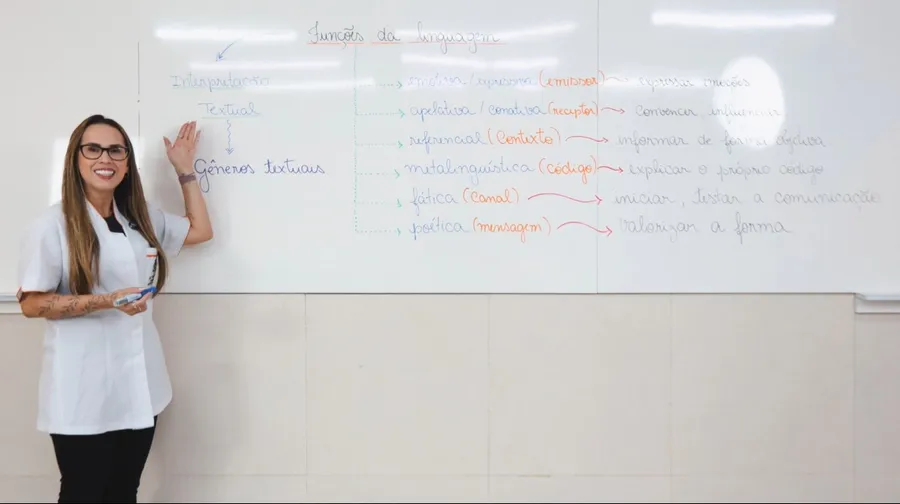 Funções da linguagem
Interpretação
Textual
Gêneros textuais
emotiva / expressiva (emissor) expressar emoções
apelativa / conativa (receptor) convencer, influenciar
referencial (contexto) informar de forma objetiva
metalinguística (código) explicar o próprio código
fática (canal) iniciar, testar a comunicação
poética (mensagem) valorizar a forma